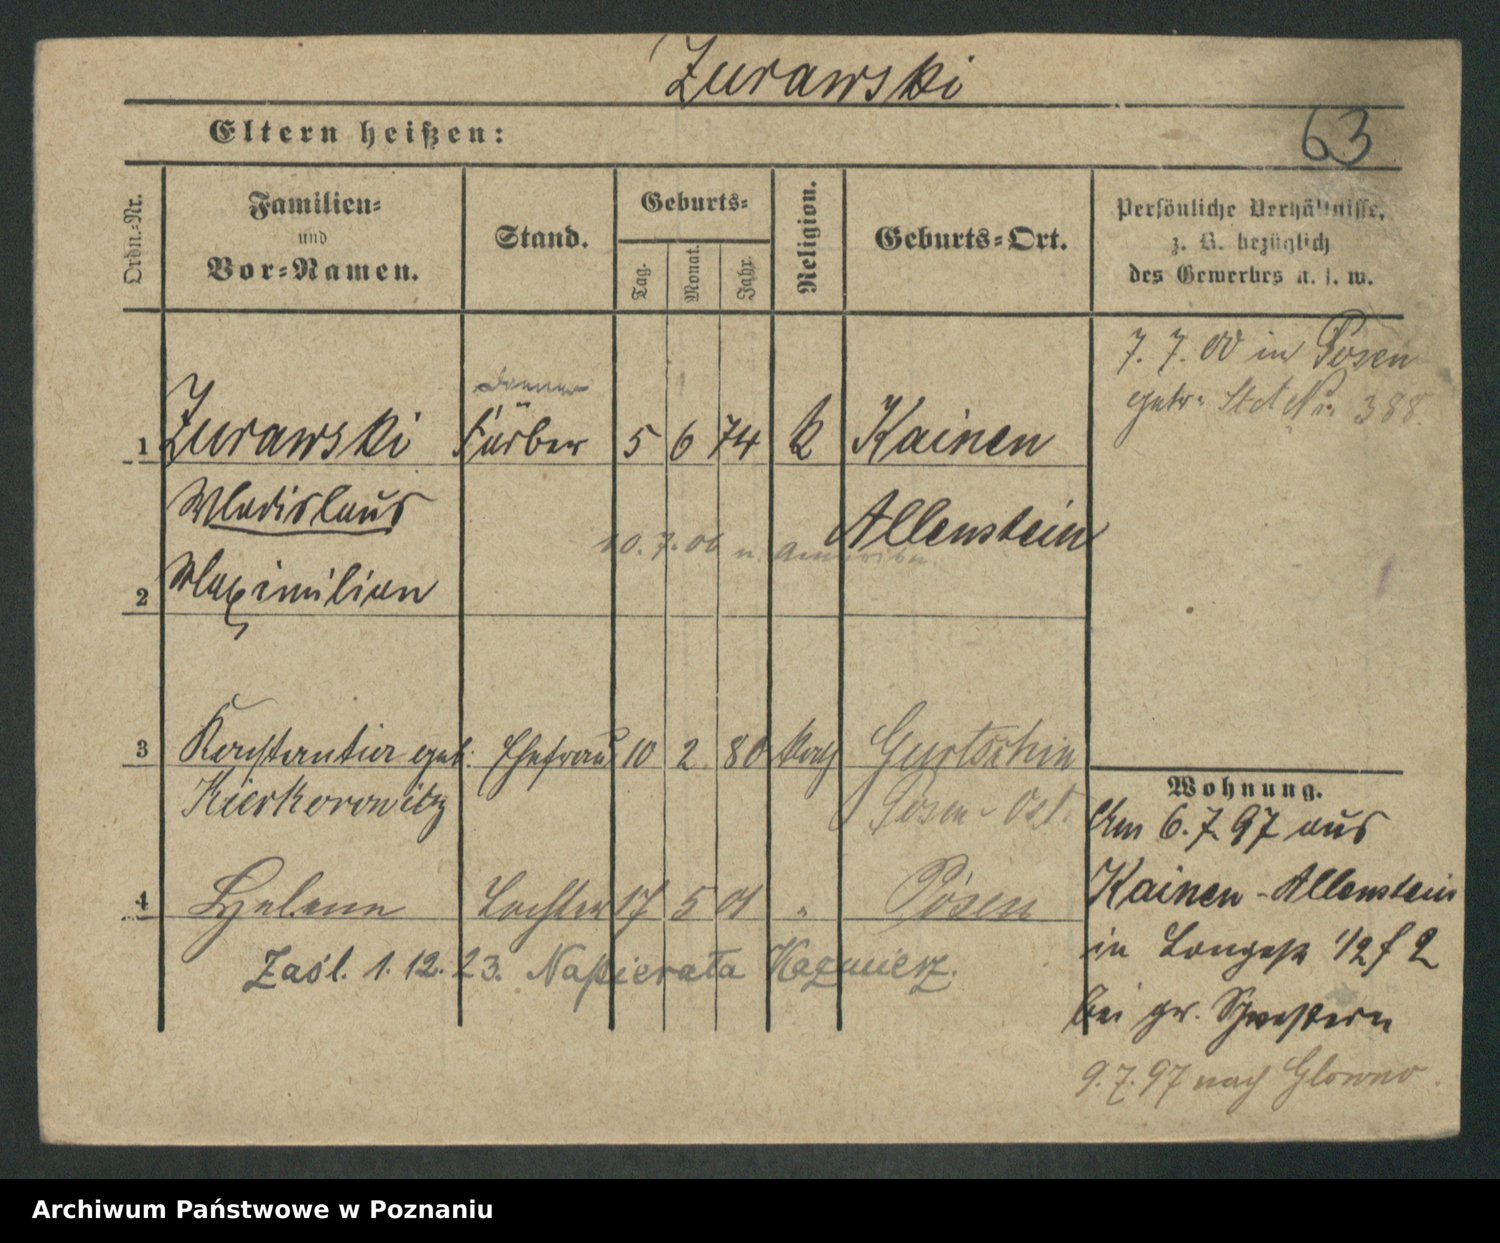 Zurawski
Eltern heißen:
63
Ordn.-Nr.
Familien-
und
Vor-Namen.
Stand.
Geburts-
Tag.
Monat.
Jahr.
Religion.
Geburts-Ort.
Persönliche Verhältnisse,
z. B. bezüglich
des Gewerbes u. s. w.
7. 7. 00 in Posen
getr. StA Nr. 388.
1 Zurawski Färber 5 6 74 k Kainen
Wladislaus Allenstein
10. 7. 00 n.
2 Maximilian
3 Konstantia geb. Ehefrau 10 2 80 kath Gurtschin
Kierkorowitz Posen-Ost.
4 Helene Tochter 17 5 01 " Posen
Zaśl. 1. 12. 23. Napierała Kazmierz.
Wohnung.
Am 6. 7. 97 aus
Kainen-Allenstein
in Langestr 1/2
bei gr. Schwestern
9. 7. 97 nach Glowno.
Archiwum Państwowe w Poznaniu